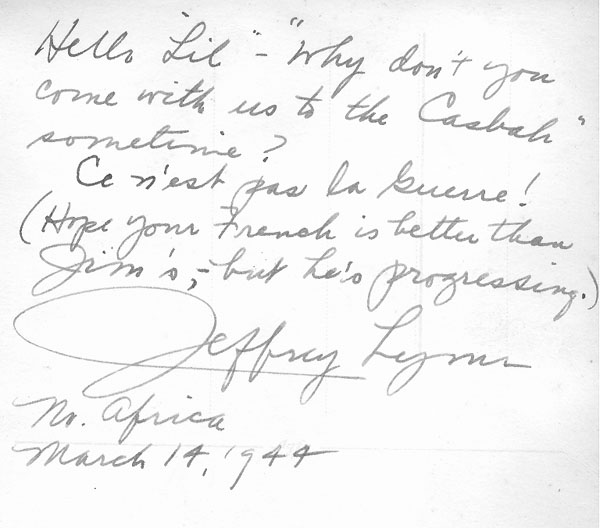 Hello "Lil" - "Why don't you
come with us to the Casbah"
sometime?
Ce n'est pas la Guerre!
(Hope your French is better than
Jim's, - but he's progressing.)
Jeffrey Lynn
No. Africa
March 14, 1944